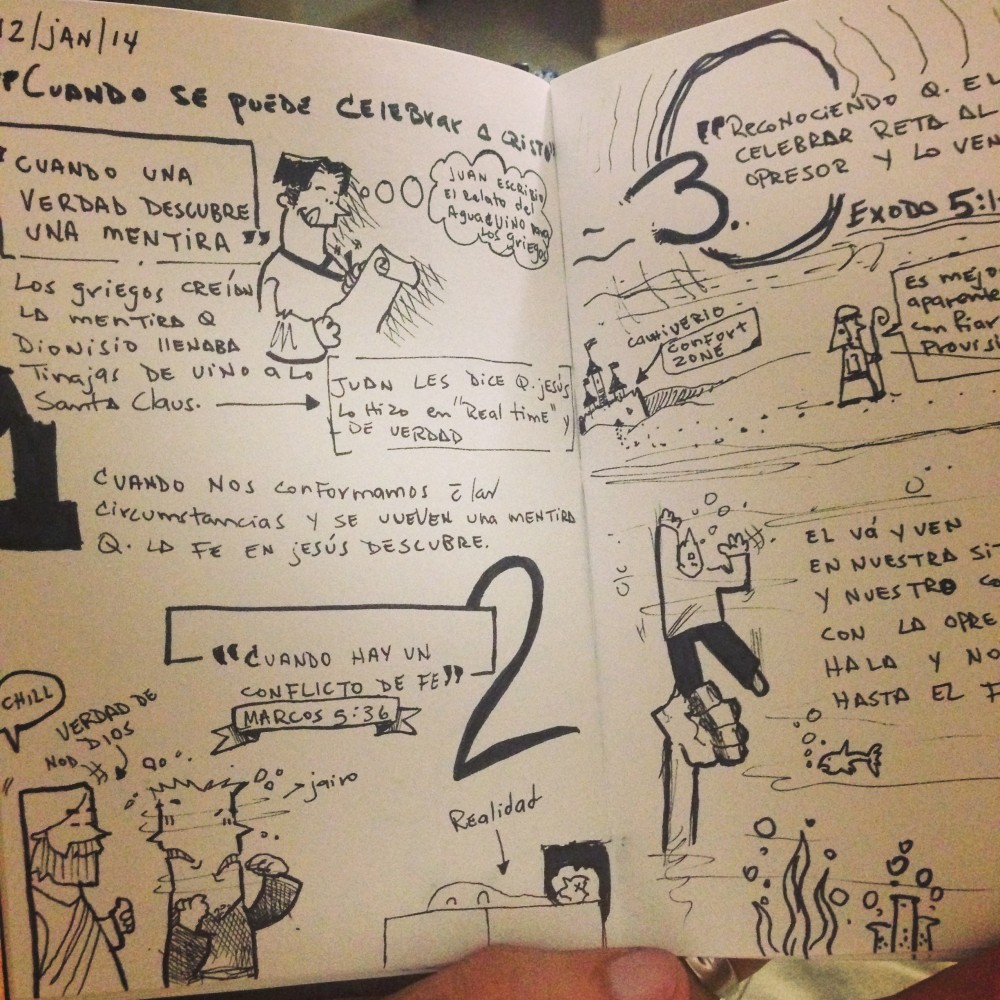 12/JAN/14
"CUANDO SE PUEDE CELEBrar A CRISTO"
"CUANDO UNA
VERDAD DESCUBRE
UNA MENTIRA"
JUAN ESCRIBIO
El Relato del
Agua
los griegos
Los griegos CREÍAN
LA MENTIRA Q
DIONISIO llENABA
Tinajas DE VINO A LO
Santa Claus.
JUAN LES DICE Q. JESÚS
Lo Hizo en "Real time" y
DE VERDAD
1
CUANDO NOS CONFORMAMOS
circumstancias Y SE VUELVEN una MENTIRA
Q. LA FE EN JESÚS DESCUBRE.
2
"CUANDO HAY UN
CONFLICTO DE FE"
MARCOS 5:36
CHILL
VERDAD DE
DIOS
NOD
jairo
Realidad
3.
"RECONOCIENDO Q. EL
CELEBRAR RETA AL
OPRESOR Y LO VEN
EXODO 5:1
CAUTIVERIO
CONFORT
ZONE
ES MEJO
aparente
confiar
Provisi
EL VÁ Y VEN
EN NUESTRA SIT
Y NUESTRO CO
CON LA OPRE
HALA Y NO
HASTA EL F